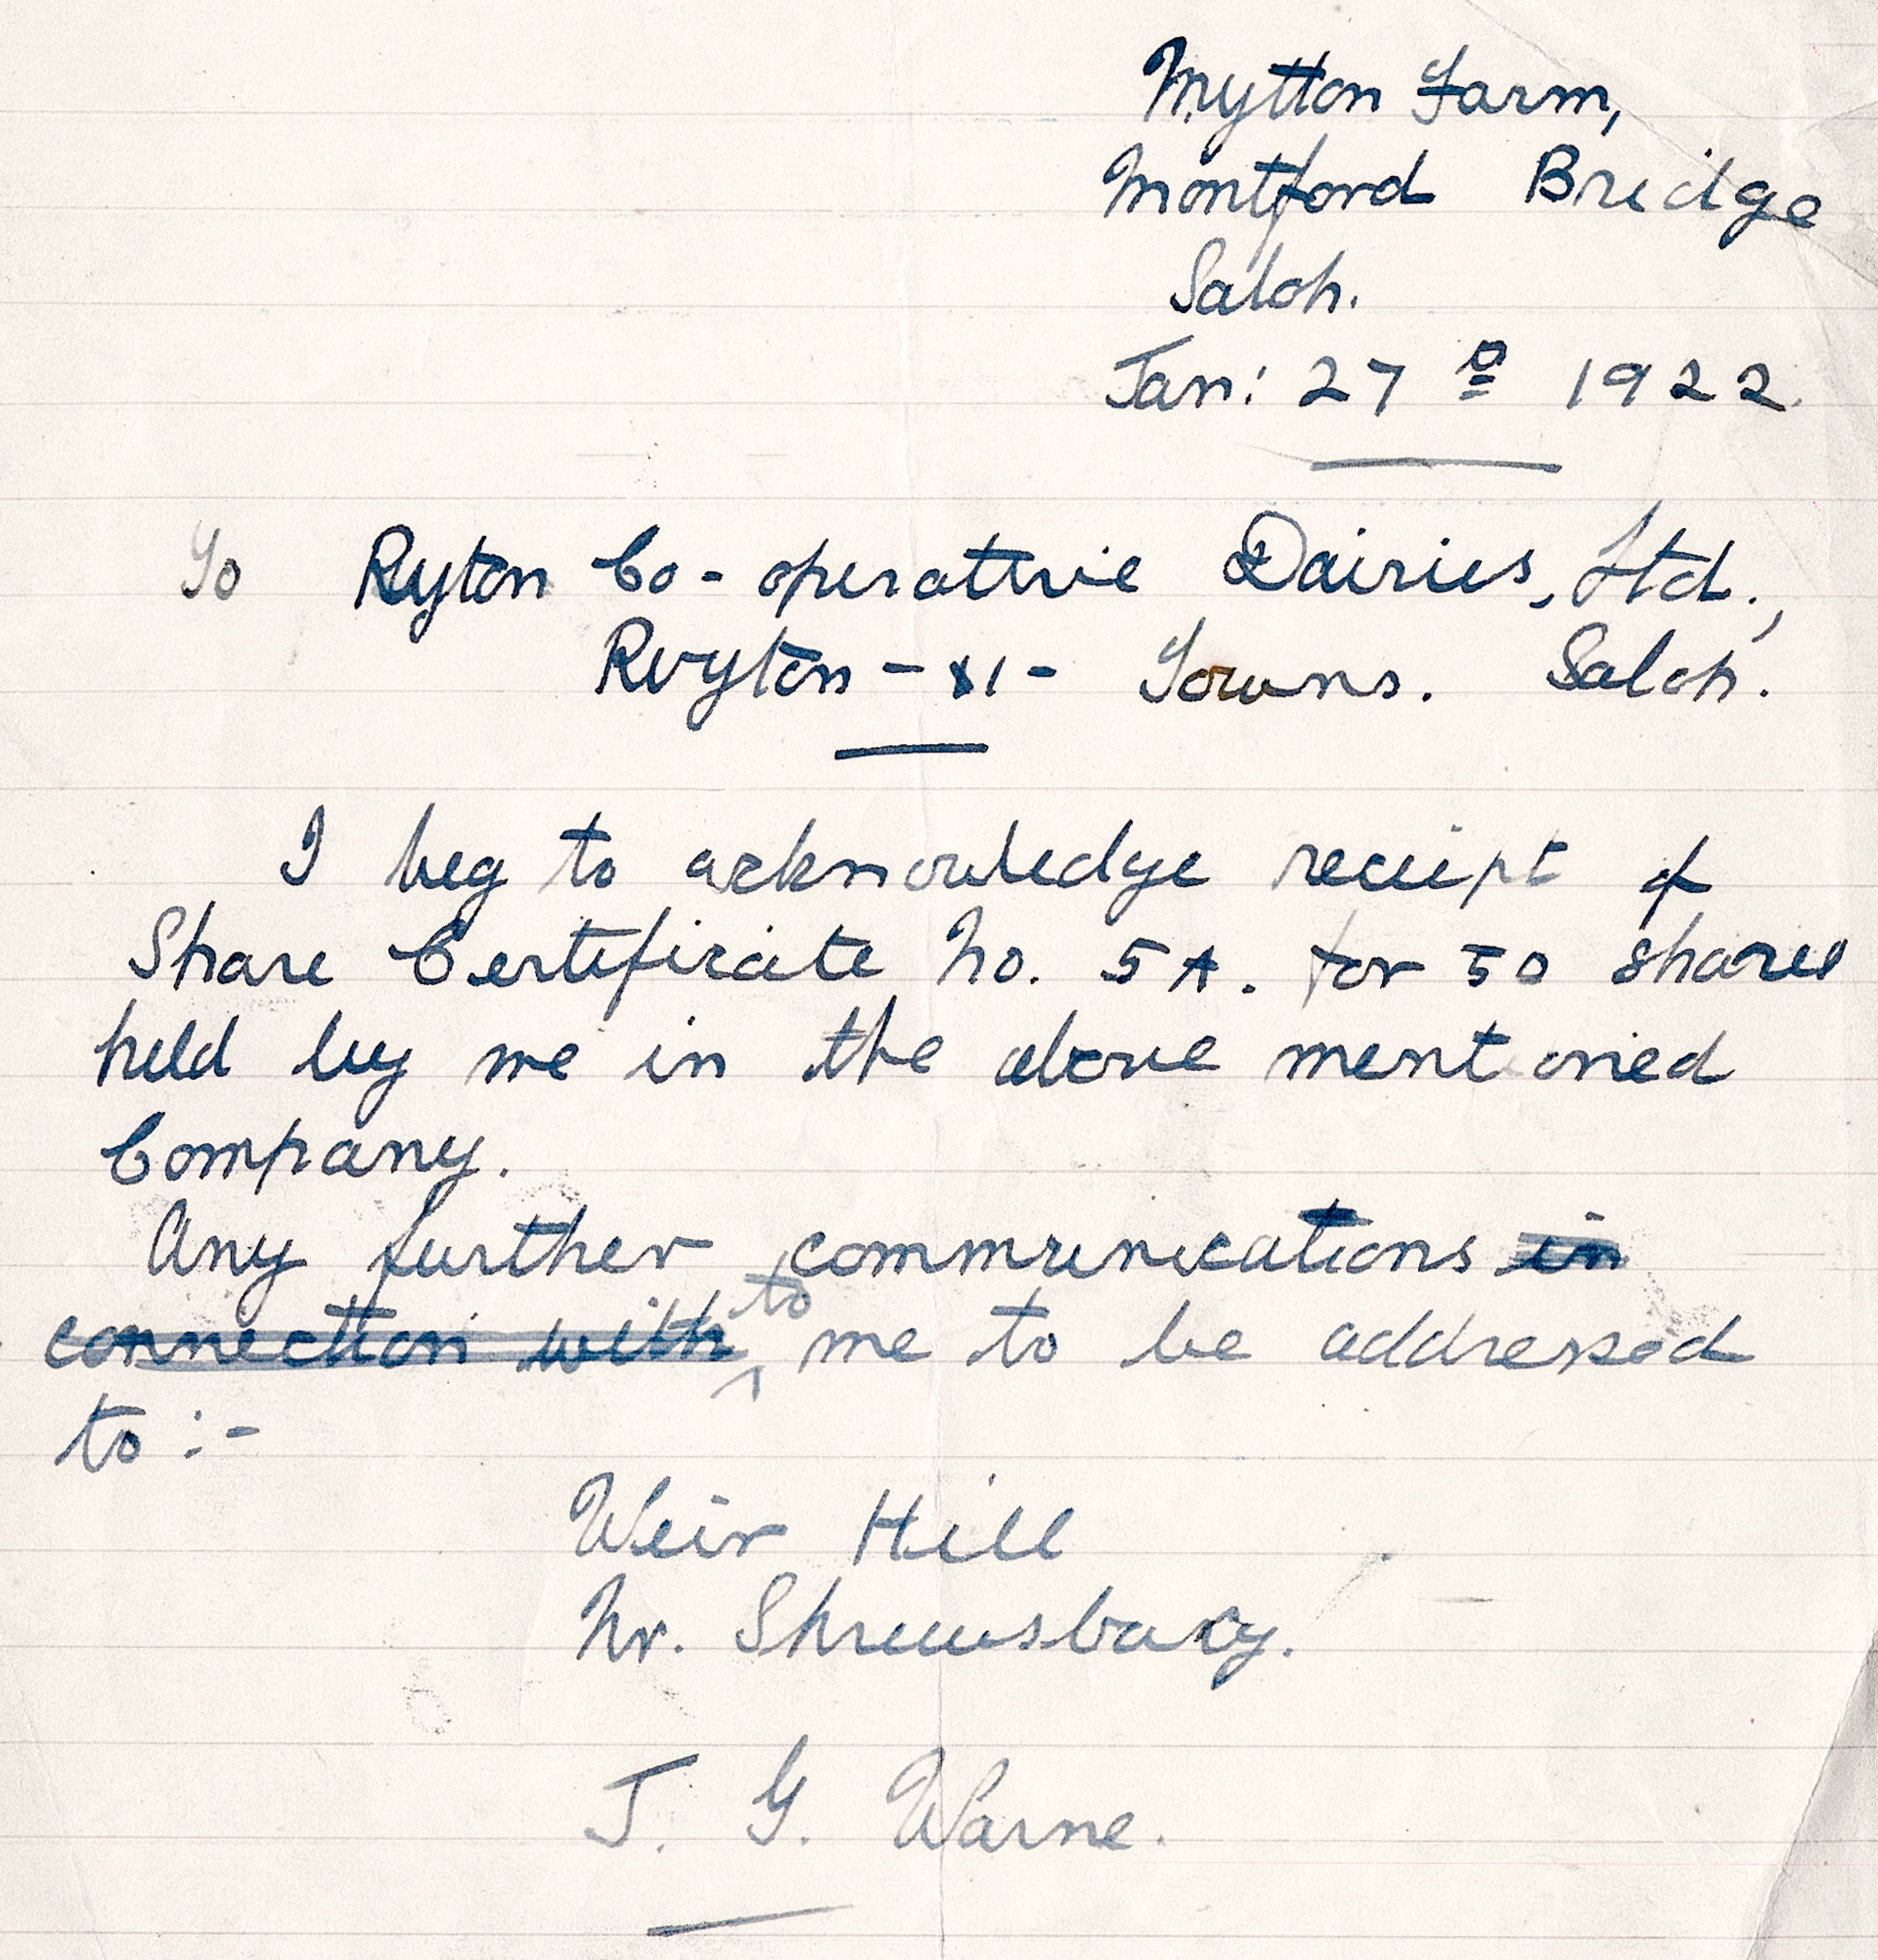 Mytton Farm,
Montford Bridge
Salop.
Jan: 27º 1922.
To Ryton Co-operative Dairies, Ltd.,
Ruyton-XI-Towns. Salop.
I beg to acknowledge receipt of
Share Certificate No. 5A. for 50 shares
held by me in the above mentioned
Company.
Any further communications in
connection with to me to be addressed
to :-
Weir Hill
Nr. Shrewsbury.
J. G. Warne.